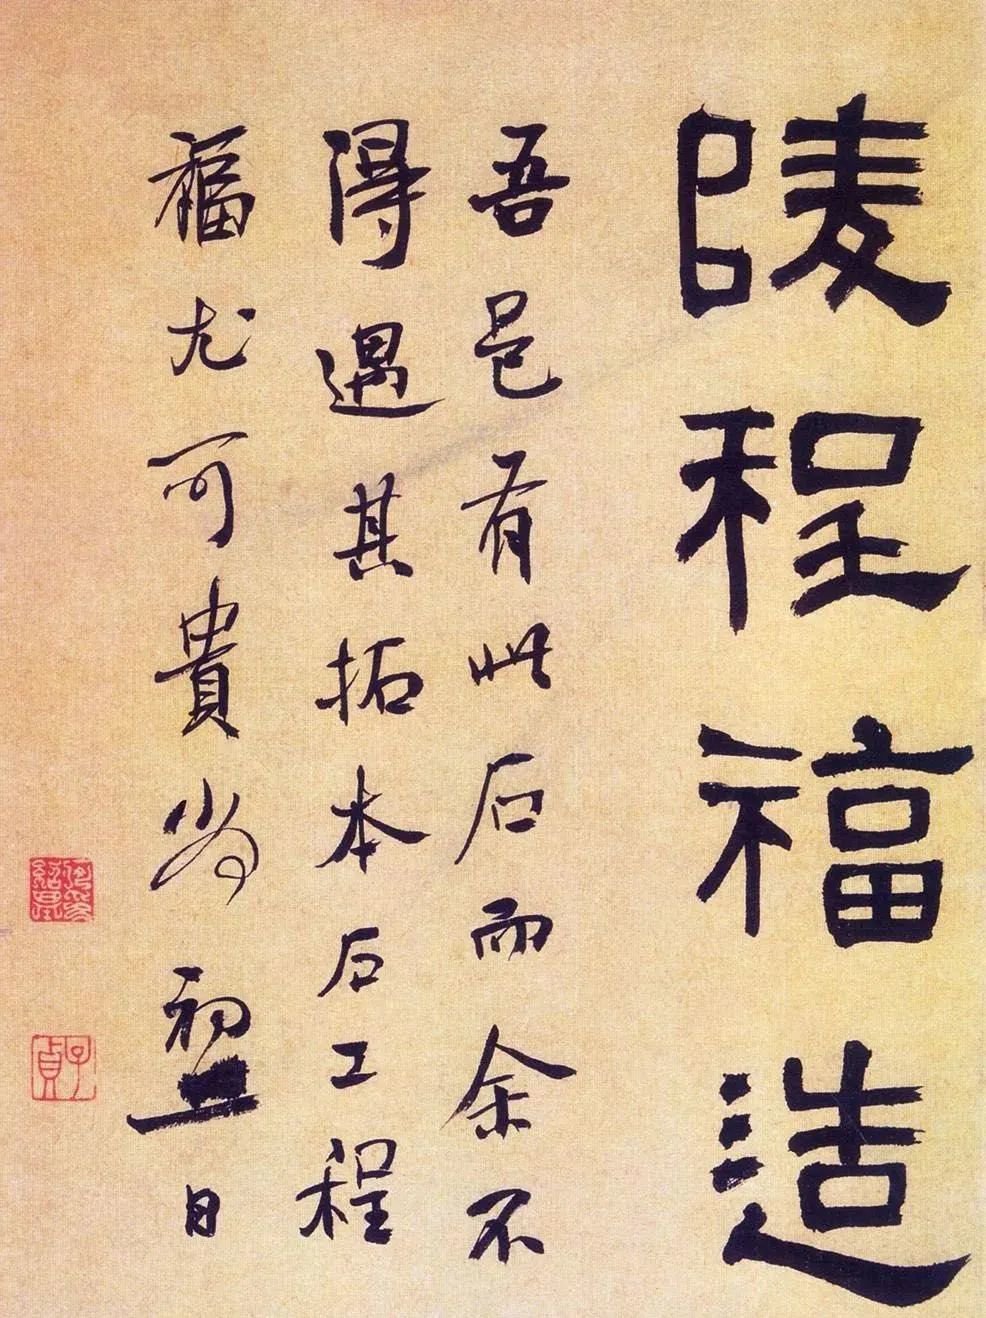 陵程福造
吾邑有此石而余不
得遇其拓本石工程
福尤可貴 初 日
子貞